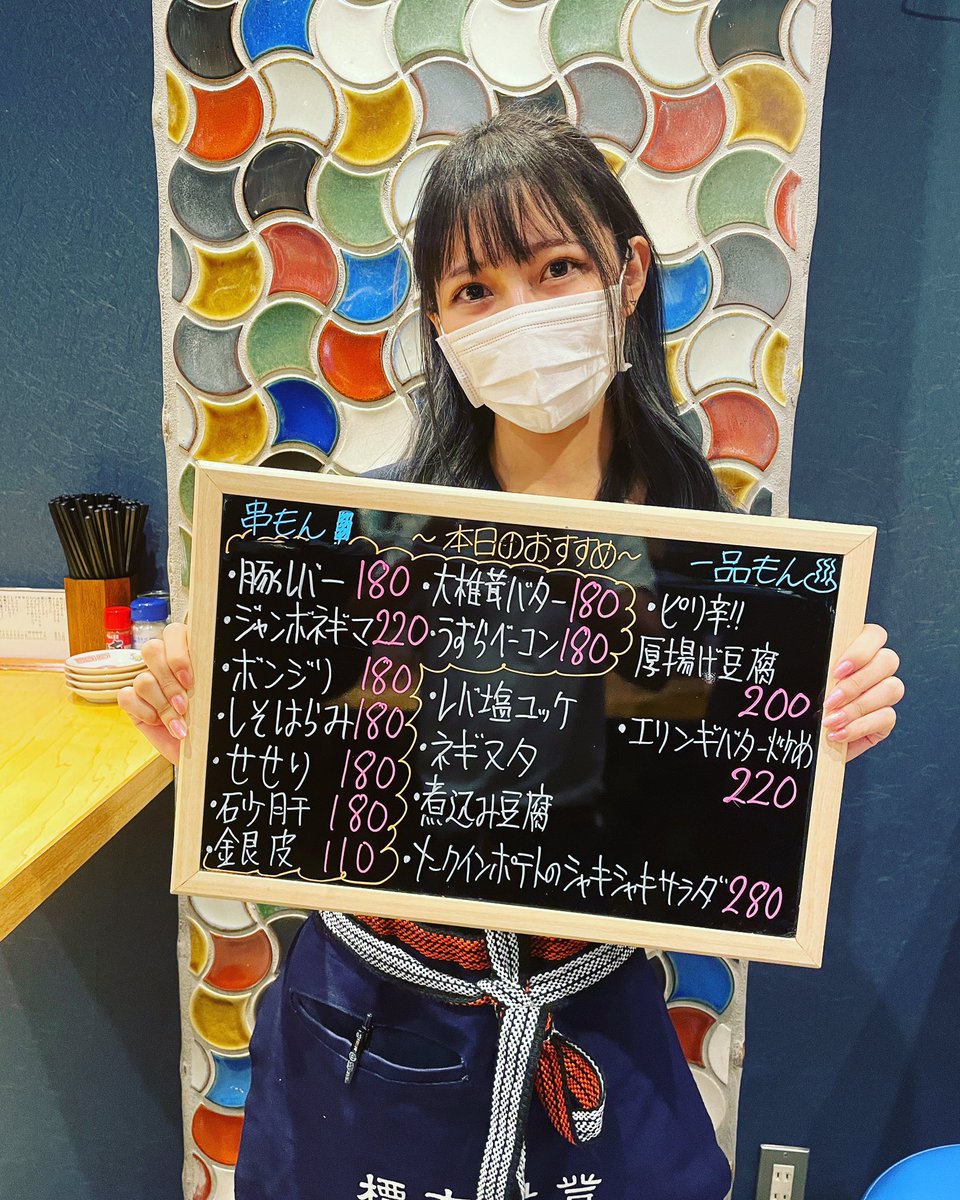 串もん
～本日のおすすめ～
一品もん
・豚レバー 180
・ジャンボネギマ 220
・ボンジリ 180
・しそはらみ 180
・せせり 180
・砂ケ月干 180
・銀皮 110
・大椎茸バター 180
・うずらベーコン 180
・レバ塩ユッケ
・ネギヌタ
・煮込み豆腐
・メークインポテトのシャキシャキサラダ 280
・ピリ辛!!
厚揚げ豆腐
200
・エリンギバター炒め
220